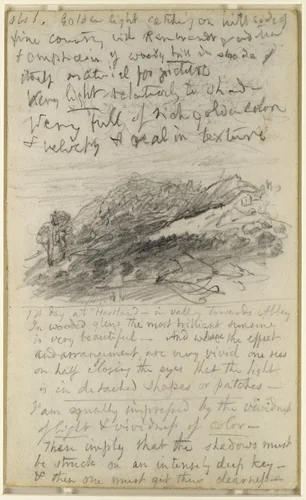 Golden light catching on hill edge of
fine country
& of woody hill in shade of
material for picture
Very light relatively to shade
Very full of rich golden color
& velvety & real in texture
1st day at Hartland - in valley towards Abbey
In wooded glens the most brilliant sunshine
is very beautiful - And where the effect
and arrangement are very vivid one sees
on half closing the eyes that the light
is in detached shapes or patches -
I am equally impressed by the vividness
of light & vividness of color -
These imply that the shadows must
be struck on an intensely deep key -
& then one must get their clearness -